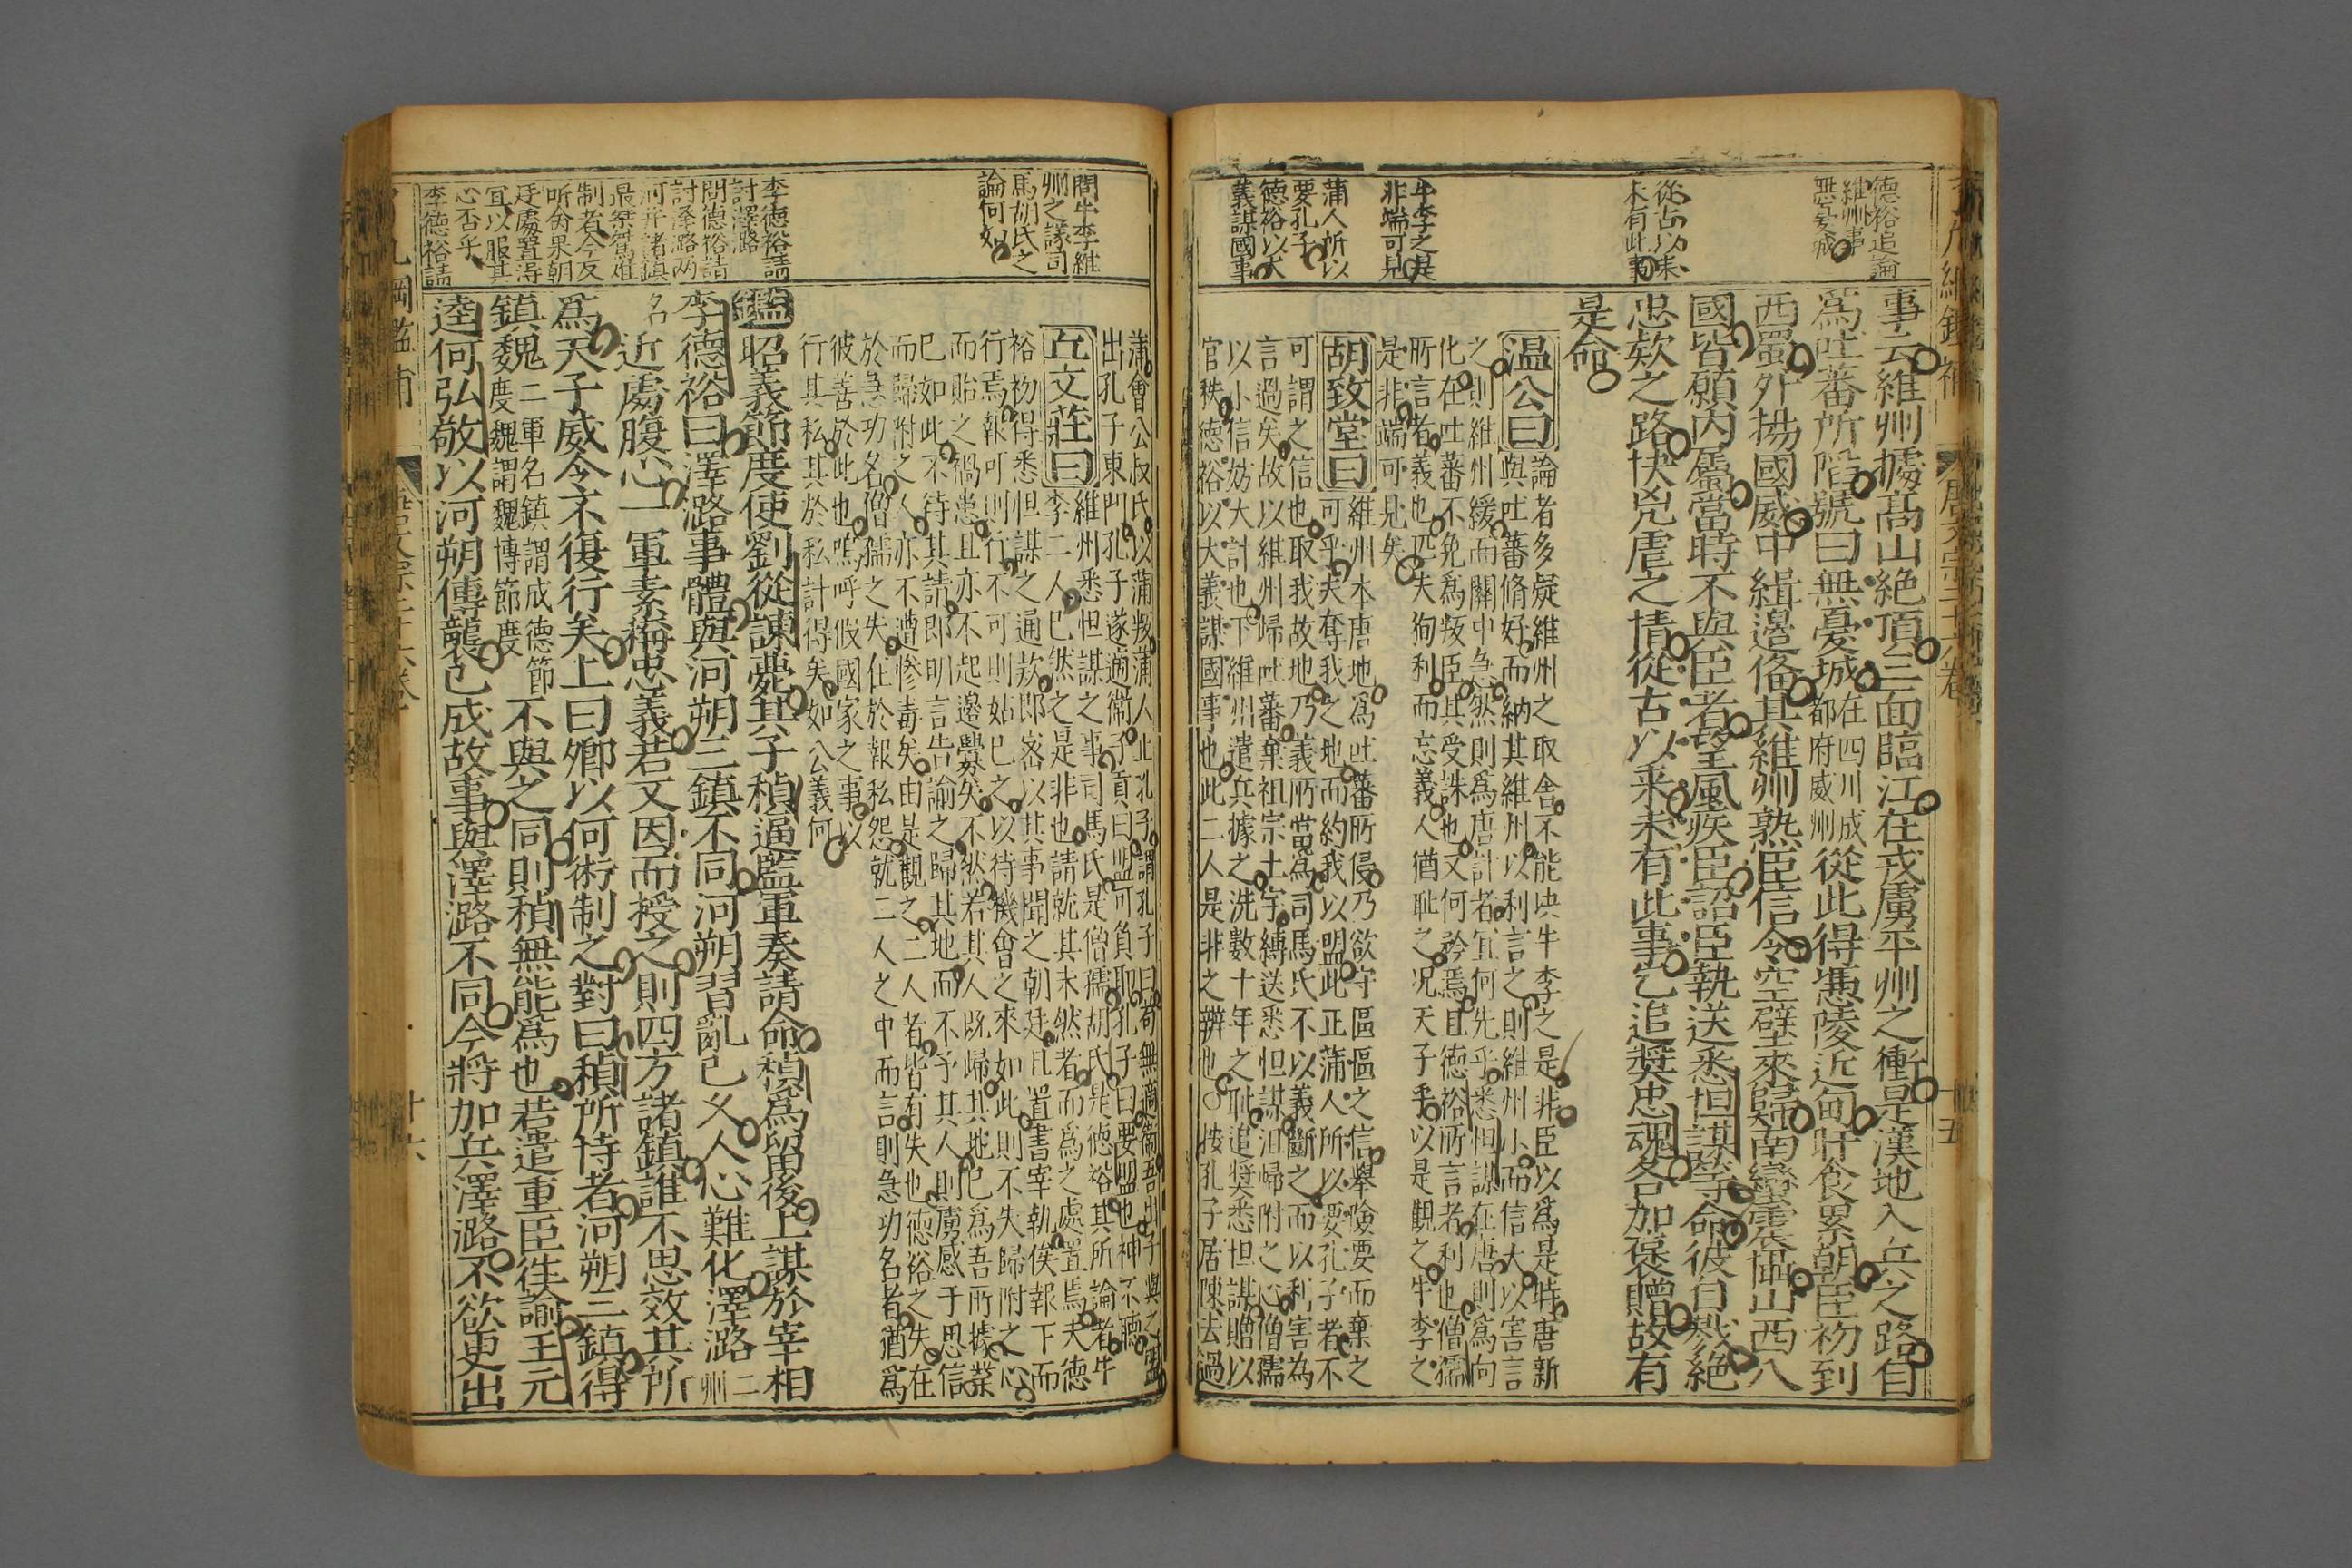 德裕追論
維州事
無憂城
從古以來
未有此事
牛李之是
非端可見
蒲人所以
要孔子
德裕以大
義謀國事
事云維州據高山絶頂三面臨江在戎虜平州之衝是漢地入兵之路自
爲吐蕃所陷號曰無憂城在四川成都府威州從此得憑陵近甸旰食累朝臣初到
西蜀外揚國威中緝邊俻其維州熟臣信令空壁來歸南蠻震懾山西八
國皆願內屬當時不與臣者望風疾臣詔臣執送悉怛謀等命彼自戮絶
忠欵之路快兇虐之情從古以來未有此事乞追奬忠魂各加褒贈故有
是命
溫公曰
論者多疑維州之取舍不能决牛李之是非臣以爲是時唐新
與吐蕃脩好而納其維州以利言之則維州小而信大以害言
之則維州緩而關中急然則爲唐計者宜何先乎悉怛謀在唐則爲向
化在吐蕃不免爲叛臣其受誅也又何矜焉且德裕所言者利也僧孺
所言者義也匹夫狥利而忘義人猶耻之况天子乎以是觀之牛李之
是非端可見矣
胡致堂曰
維州本唐地爲吐蕃所侵乃欲守區區之信舉險要而棄之
可乎夫奪我之地而約我以盟此正蒲人所以要孔子者不
可謂之信也取我故地乃義所當爲司馬氏不以義斷之而以利害為
言過矣故以維州歸吐蕃棄祖宗土宇縛送悉怛謀沮歸附之心僧孺
以小信妨大計也下維州遣兵據之洗數十年之耻追奬悉怛謀贈以
官秩德裕以大義謀國事也此二人是非之辨也○按孔子居陳去過
問牛李維
州之議司
馬胡氏之
論何如
李德裕請
討澤路
問德裕請
討澤路兩
河并諸鎮
最桀驁難
制者今反
听命果朝
廷處置得
宜以服其
心否乎
李德裕請
蒲會公叔氏以蒲叛蒲人止孔子謂孔子曰苟無適衛吾出子與之盟
出孔子東門孔子遂適衞子貢曰盟可負耶孔子曰要盟也神不聽
丘文莊曰
維州悉怛謀之事司馬氏是僧孺胡氏是德裕其所論者牛
李二人已然之是非也請就其未然者而爲之處置焉夫德
裕初得悉怛謀之通欵即密以其事聞之朝廷且置書宰執俟報下而
行焉報可則行不可則姑已之以待機會之來如此則不失歸附之心
而貽之禍患且亦不起邊釁矣不然若其人旣歸其地已爲吾所據業
已如此不待其請即明言告諭之歸其地而不予其人則虜感于思信
而歸附之人亦不遭慘毒矣由是觀之二人者皆有失也德裕之失在
於急功名僧孺之失在於報私怨就二人之中而言則急功名者猶爲
彼善於此也嗚呼假國家之事以
行其私其於私計得矣如公義何
鑑昭義節度使劉從諫薨其子稹逼監軍奏請命稹爲留後上謀於宰相
李德裕曰澤潞事體與河朔三鎮不同河朔習亂已久人心難化澤潞二州
名近處腹心一軍素稱忠義若又因而授之則四方諸鎮誰不思效其所
爲天子威令不復行矣上曰卿以何術制之對曰稹所恃者河朔三鎮得
鎮魏二軍名鎮謂成德節度魏謂魏博節度不與之同則稹無能爲也若遣重臣徃諭王元
逵何弘敬以河朔傳襲已成故事與澤潞不同今將加兵澤潞不欲更出
十六